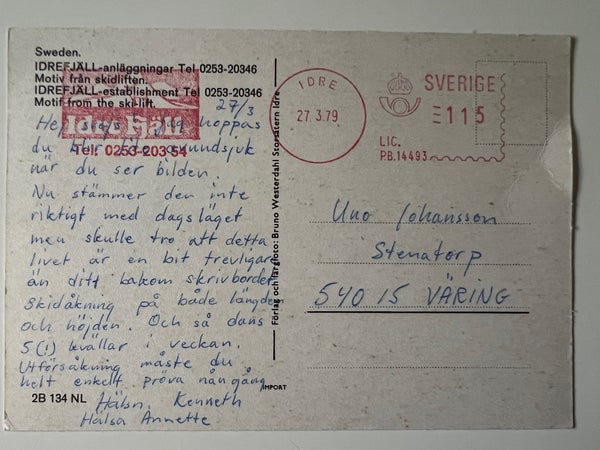 Sweden.
IDREFJÄLL-anläggningar Tel 0253-20346
Motiv från skidliften.
IDREFJÄLL-establishment Tel 0253-20346
Motif from the ski-lift.
27/3
Idre Fjäll
Tel. 0253-203 54
Hej jag hoppas
du blir lite avundsjuk
när du ser bilden.
Nu stämmer den inte
riktigt med dagsläget
men skulle tro att detta
livet är en bit trevligare
än ditt bakom skrivbordet
Skidåkning på både längden
och höjden. Och så dans
5 (!) kvällar i veckan.
Utförsåkning måste du
helt enkelt pröva någon gång
Hälsn. Kenneth
Hälsa Annette
2B 134 NL
IMPORT
Förlag och färgfoto: Bruno Westerdahl Storsätern Idre
IDRE
27.3.79
SVERIGE
115
LIC.
P.B.14493
Uno Johansson
Stenatorp
540 15 VÄRING